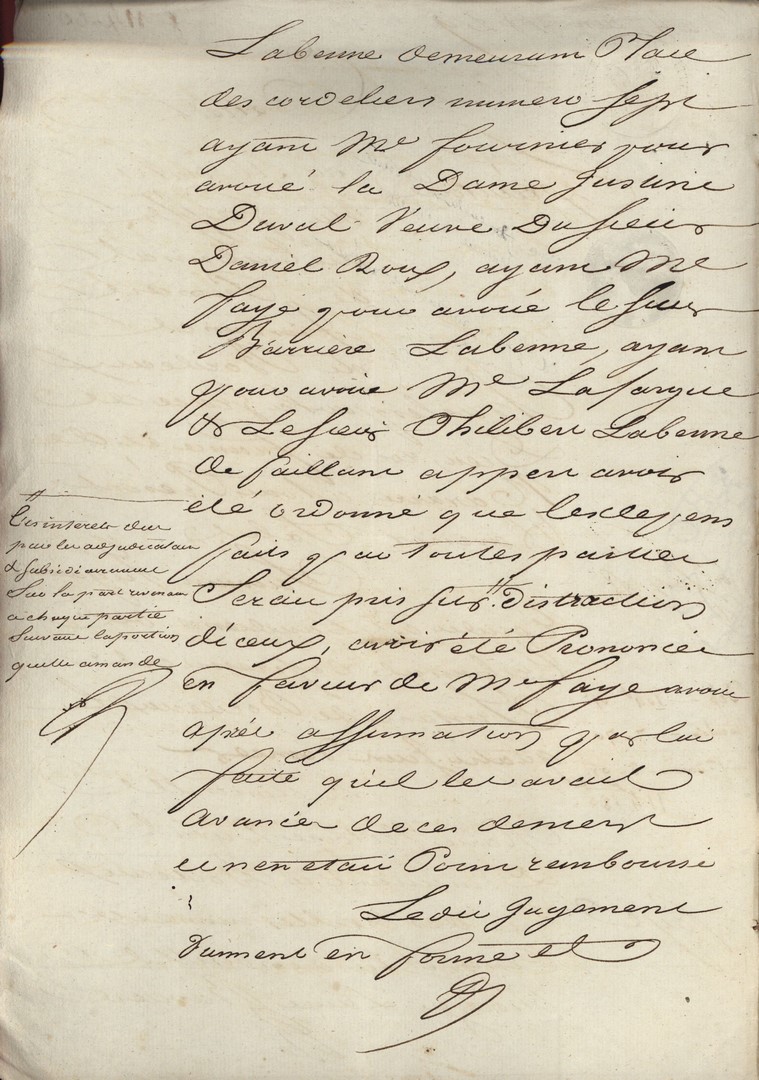 Labenne demeurant Place
des cordeliers numero sept
ayant Me fournier pour
avoué la Dame Justine
Duval Veuve Du sieur
Daniel Roux, ayant Me
faye pour avoué le sieur
Barriere Labenne, ayant
pour avoué Me Lafargue
& Le sieur Thilibert Labenne
de faillant appert avoir
été ordonné que les depens
faits par toutes parties
Seront pris sur # distraction
d'iceux, avoir été Prononcée
en faveur de Me faye avoué
après affirmation par lui
faite qu'il les avait
avancés de ses deniers
et n'en etait Point remboursé
Le dit Jugement
Duement en forme et
# Les interets dus
par les adjudicataires
& subsidiairement
Sur la part revenant
a chaque partie
Suivant la portion
qu'elle amande